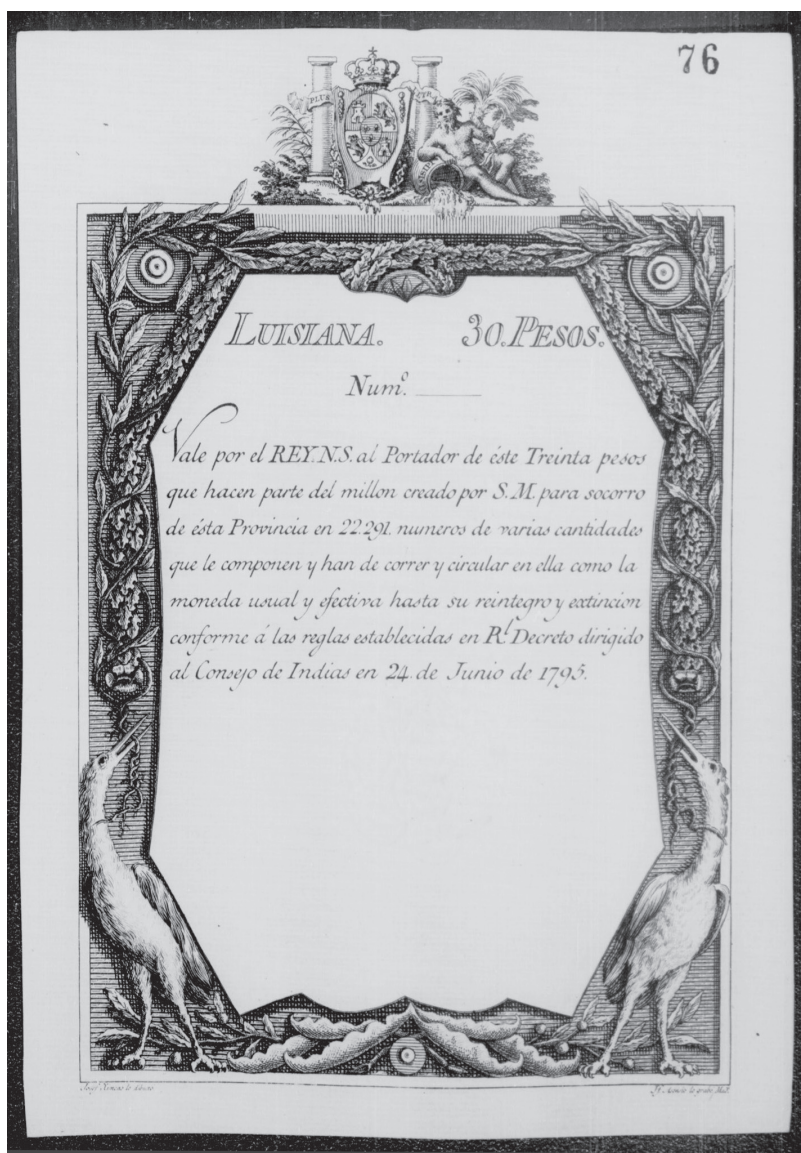 76
PLUS
LUISIANA. 30. PESOS.
Num.º
Vale por el REY. N.S. al Portador de éste Treinta pesos
que hacen parte del millon creado por S. M. para socorro
de ésta Provincia en 22.291. numeros de varias cantidades
que le componen y han de correr y circular en ella como la
moneda usual y efectiva hasta su reintegro y extincion
conforme á las reglas establecidas en R.l Decreto dirigido
al Consejo de Indias en 24. de Junio de 1795.